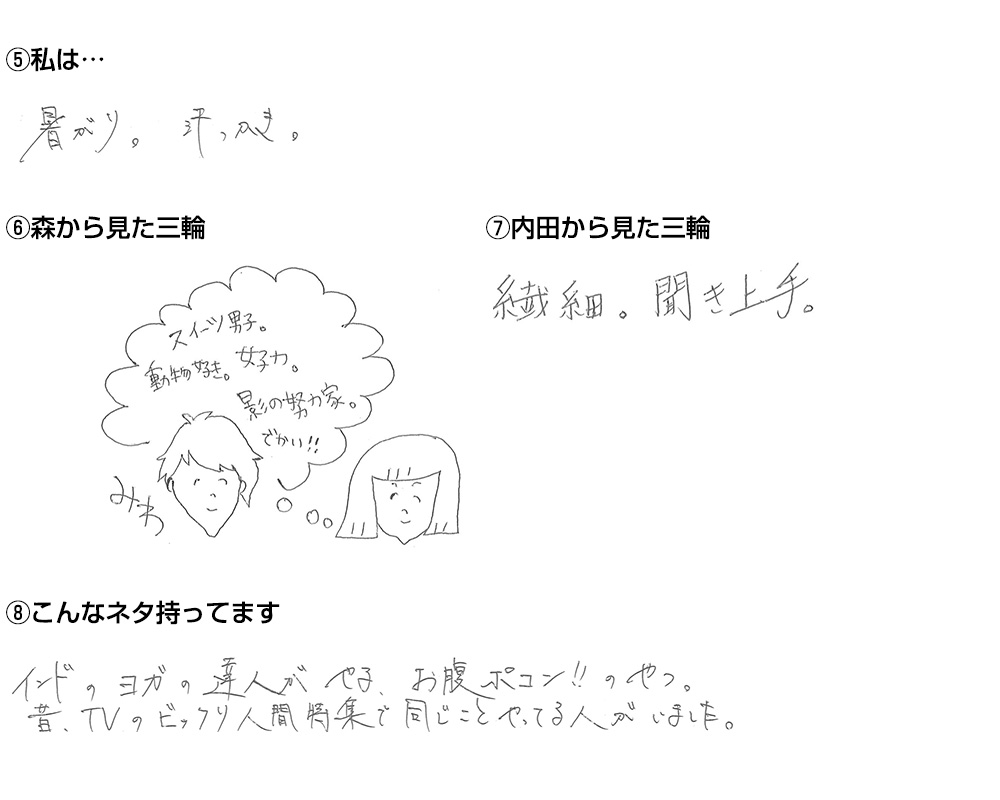 ⑤私は…
暑がり。 汗っかき。
⑥森から見た三輪
スイーツ男子。
動物好き。女子力。
影の努力家。
でかい!!
みわ
⑦内田から見た三輪
繊細。聞き上手。
⑧こんなネタ持ってます
インドのヨガの達人がやる、お腹ポコン!!のやつ。
昔、TVのビックリ人間特集で同じことやってる人がいました。